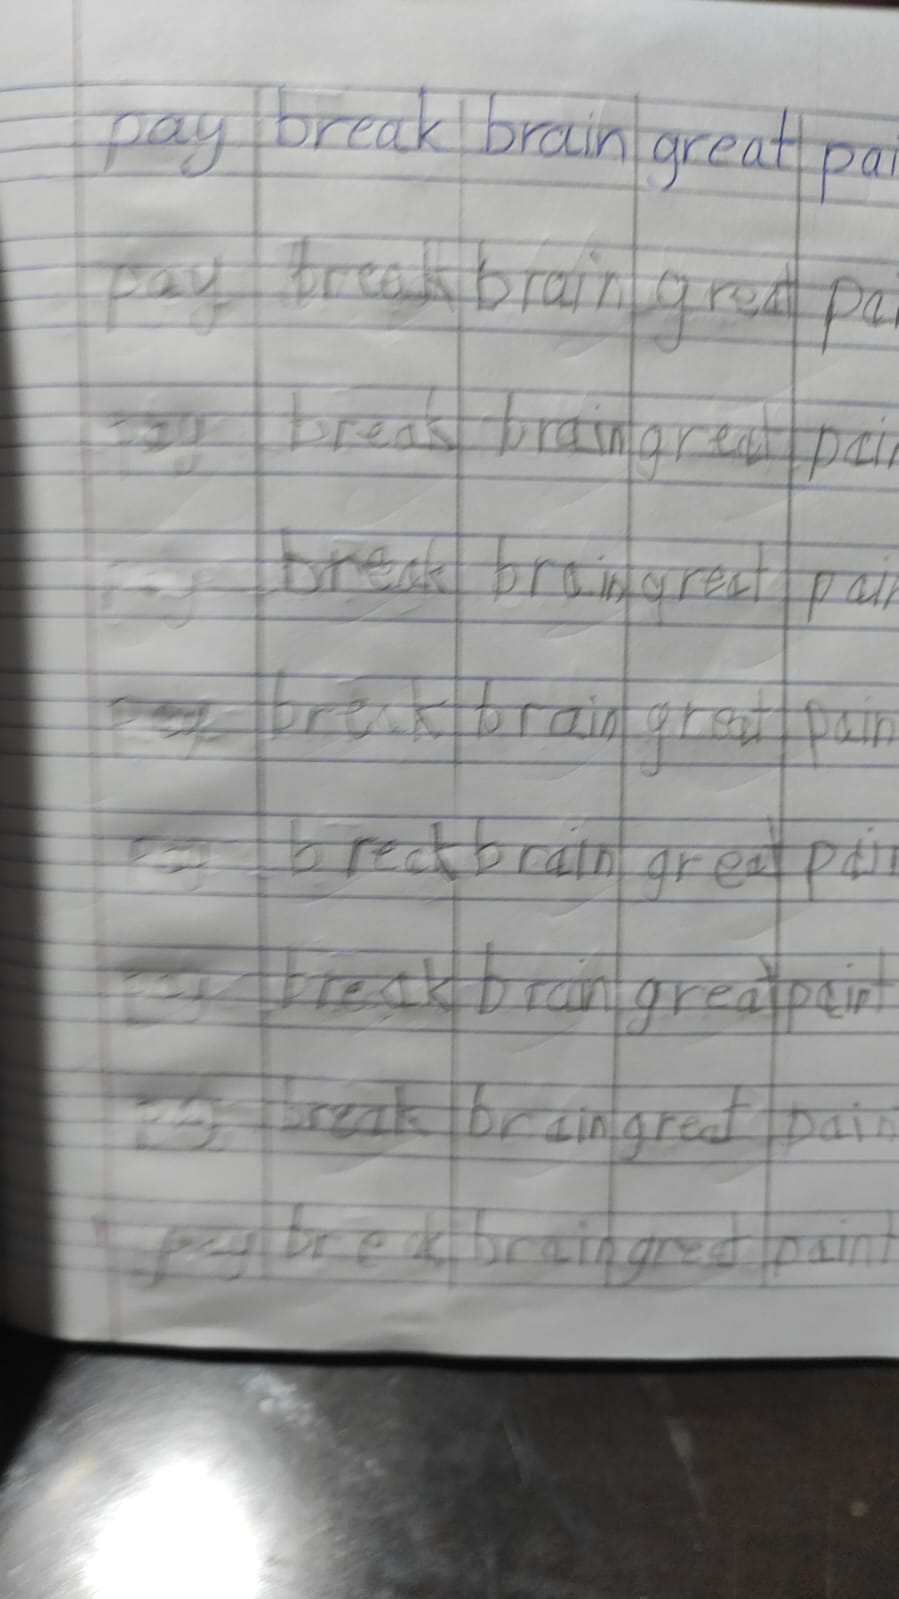 pay break brain great pai
pay break brain great pa
break brain great pain
break brain great pain
pay break brain great pain
break brain great pain
break brain great paint
break brain great pain
pay break brain great paint